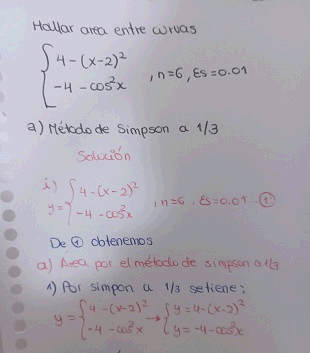 Hallar area entre curvas
{ 4 - (x-2)²
-4 - cos²x , n=6, Es=0.01
a) Método de Simpson a 1/3
Solución
i) y = { 4 - (x-2)²
-4 - cos²x , n=6 . Es=0.01 - ①
De ① obtenemos
a) Area por el método de simpson a 1/3
1) Por simpon a 1/3 se tiene:
y = { 4 - (x-2)² → { y = 4 - (x-2)²
-4 - cos²x y = -4 - cos²x